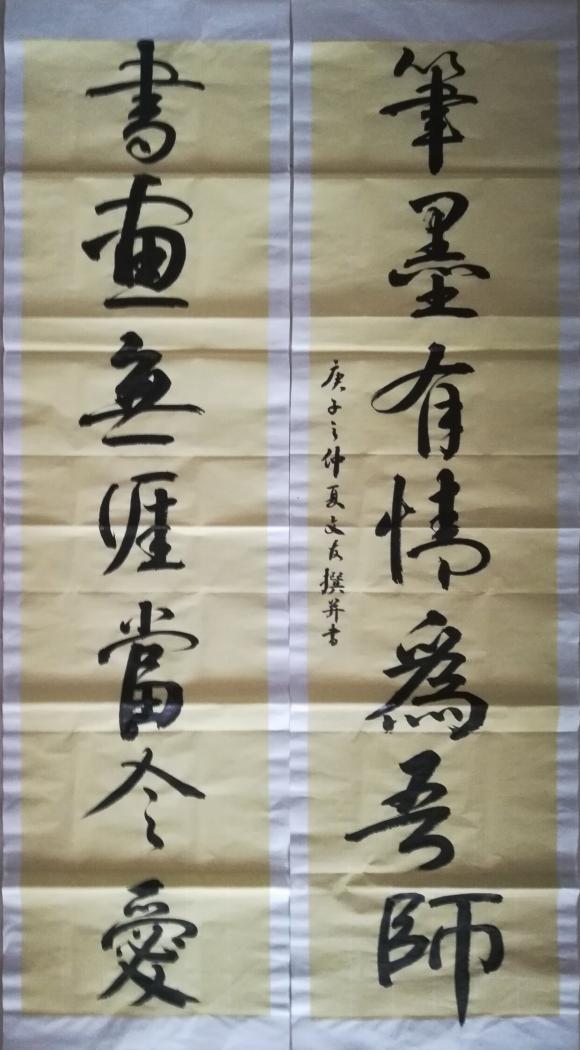 筆墨有情為吾師
庚子之仲夏文友撰并書
書畫無涯當今愛